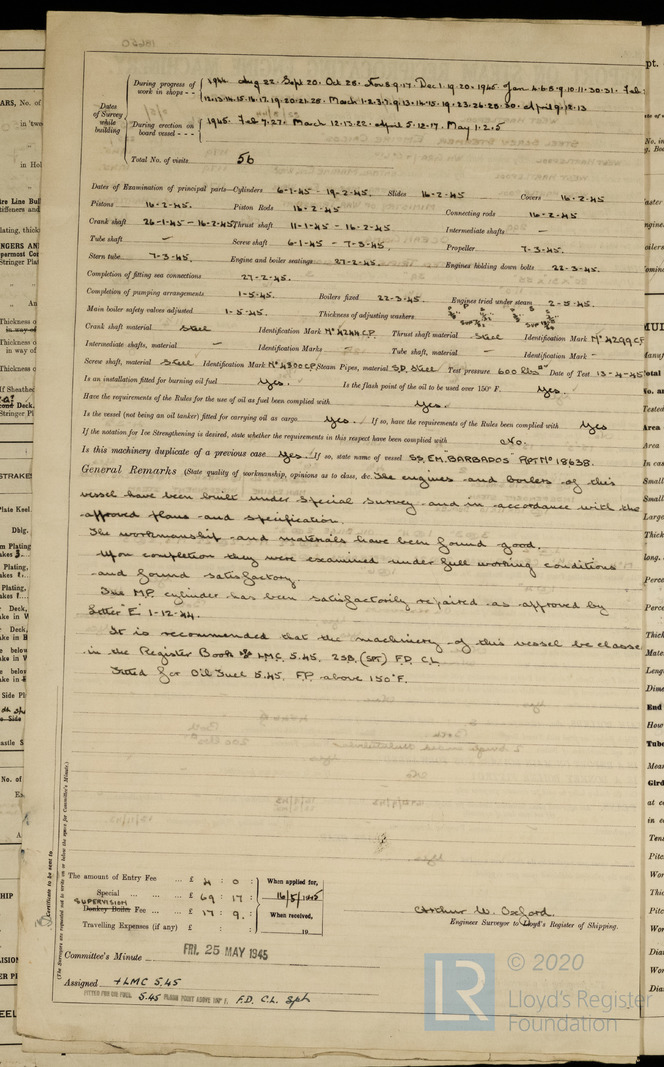 During progress of work in shops - - 1944 Aug 22. Sept 20. Oct 28. Nov 8.9.17. Dec 1.19.20. 1945 Jan 4.6.8.9.10.11.30.31. Feb:
12.13.14.15.16.17.19.20.21.28. March 1.2.3.7.9.13.14.15.19.23.26.28.30. April 9.12.13
Dates of Survey while building
During erection on board vessel - - - 1945. Feb 7.27. March 12.13.22. April 5.12.17. May 1.2.5
Total No. of visits 56
Dates of Examination of principal parts—Cylinders 6-1-45 - 19-2-45. Slides 16-2-45 Covers 16-2-45
Pistons 16-2-45. Piston Rods 16-2-45 Connecting rods 16-2-45
Crank shaft 26-1-45 - 16-2-45 Thrust shaft 11-1-45 - 16-2-45 Intermediate shafts -
Tube shaft - Screw shaft 6-1-45 - 7-3-45. Propeller 7-3-45.
Stern tube 7-3-45. Engine and boiler seatings 27-2-45. Engines holding down bolts 22-3-45.
Completion of fitting sea connections 27-2-45.
Completion of pumping arrangements 1-5-45. Boilers fixed 22-3-45. Engines tried under steam 2-5-45.
Main boiler safety valves adjusted 1-5-45. Thickness of adjusting washers
Crank shaft material Steel Identification Mark No 4244 C.P. Thrust shaft material Steel Identification Mark No 4299 CP
Intermediate shafts, material - Identification Marks - Tube shaft, material - Identification Mark -
Screw shaft, material Steel Identification Mark No 4300 C.P. Steam Pipes, material S.D. Steel Test pressure 600 lbs Date of Test 13-4-45
Is an installation fitted for burning oil fuel Yes. Is the flash point of the oil to be used over 150° F. Yes.
Have the requirements of the Rules for the use of oil as fuel been complied with Yes.
Is the vessel (not being an oil tanker) fitted for carrying oil as cargo. Yes. If so, have the requirements of the Rules been complied with Yes
If the notation for Ice Strengthening is desired, state whether the requirements in this respect have been complied with No.
Is this machinery duplicate of a previous case Yes If so, state name of vessel SS. EM. "BARBADOS" RPT No 18638.
General Remarks (State quality of workmanship, opinions as to class, &c. The engines and boilers of this
vessel have been built under Special Survey and in accordance with the
approved plans and specification.
The workmanship and materials have been found good.
Upon completion they were examined under full working conditions
and found satisfactory.
The M.P. cylinder has been satisfactorily repaired as approved by
Letter "E" 1-12-44.
It is recommended that the machinery of this vessel be classed
in the Register Book LMC. 5.45. 2SB. (SPT) F.D. C.L.
Fitted for Oil Fuel 5.45. F.P. above 150°F.
Certificate to be sent to
(The Surveyors are requested not to write on or below the space for Committee's Minute.)
The amount of Entry Fee £ 4 : 0 : When applied for,
Special £ 69 : 17 : 16/5/1945
SUPERVISION
Donkey Boiler Fee £ 17 : 9 : When received,
Travelling Expenses (if any) £ : : 19
Arthur W. Oxford.
Engineer Surveyor to Lloyd's Register of Shipping.
Committee's Minute FRI. 25 MAY 1945
Assigned + LMC 5.45
FITTED FOR OIL FUEL 5.45 FLASH POINT ABOVE 150° F. F.D. C.L. Spt
© 2020
LR Lloyd's Register
Foundation